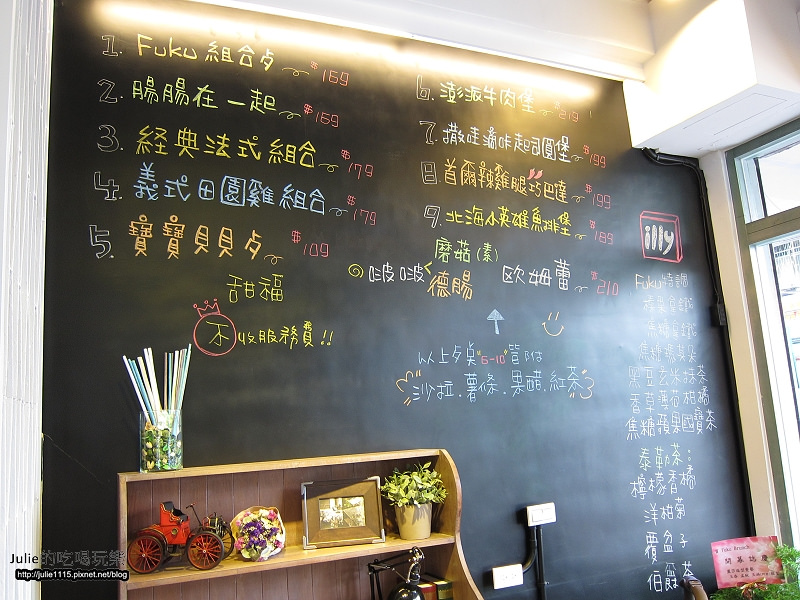 1. Fuku 組合歺 $169
2. 腸腸在一起 $169
3. 經典法式組合 $179
4. 義式田園雞組合 $179
5. 寶寶貝貝歺 $109
甜福
不收服務費!!
6. 澎派牛肉堡 $219
7. 撒哇滴咔起司圓堡 $199
8. 首爾辣雞腿巧巴達 $199
9. 北海小英雄魚排堡 $189
磨菇(素)
啵啵 德腸 歐姆蕾 $210
以上歺點"6-10"皆附
沙拉.薯條.果醋.紅茶
illy
Fuku特調
黑豆玄米抹茶
焦糖蘋果國寶茶
泰勒茶:
檸檬香橘
洋柑菊
覆盆子
伯爵茶
Julie的吃喝玩樂
http://julie1115.pixnet.net/blog